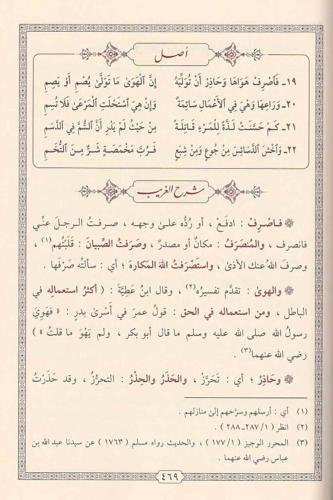 أصل
١٩ـ فَاصْرِفْ هَوَاهَا وَحَاذِرْ أَنْ تُوَلِّيَهُ إِنَّ الْهَوَىٰ مَا تَوَلَّىٰ يُصْمِ أَوْ يَصِمِ
٢٠ـ وَرَاعِهَا وَهْيَ فِي الْأَعْمَالِ سَائِمَةٌ وَإِنْ هِيَ اسْتَحْلَتِ الْمَرْعَىٰ فَلَا تُسِمِ
٢١ـ كَمْ حَسَّنَتْ لَذَّةً لِلْمَرْءِ قَاتِلَةً مِنْ حَيْثُ لَمْ يَدْرِ أَنَّ السُّمَّ فِي الدَّسَمِ
٢٢ـ وَاخْشَ الدَّسَائِسَ مِنْ جُوعٍ وَمِنْ شِبَعٍ فَرُبَّ مَخْمَصَةٍ شَرٌّ مِنَ التُّخَمِ
شرح الغريب
فاصْرِفْ : ادفَعْ ، أو رُدَّه علىٰ وجهه ، صرفتُ الرجلَ عنِّي
فانصرف ، والمُنصَرَفُ : مكانٌ أو مصدرٌ ، وصَرَفتُ الصِّبيانَ : قَلَبْتُهم (١) ،
وصرفَ اللهُ عنك الأذىٰ ، واستَصرَفْتُ اللهَ المكارهَ ؛ أي : سألتُه صَرْفَها .
والهوىٰ : تقدَّم تفسيرُه (٢) ، وقال ابنُ عَطيَّةَ : ( أكثرُ استعماله في
الباطل ، ومن استعماله في الحق : قولُ عمرَ في أَسرىٰ بدرٍ : « فَهَوِيَ
رسولُ الله صلى الله عليه وسلم ما قال أبو بكر ، ولم يَهْوَ ما قلتُ » )
رضي الله عنهما (٣) .
وحَاذِرْ ؛ أي : تَحَرَّزْ ، والحَذَرُ والحِذْرُ : التحرُّزُ ، وقد حَذِرْتُ
(١) أي : أرسلهم وسرَّحهم إلىٰ منازلهم .
(٢) انظر ( ١/ ٢٨٧ـ٢٨٨ ) .
(٣) المحرر الوجيز ( ١/ ١٧٧ ) ، والحديث رواه مسلم ( ١٧٦٣ ) عن سيدنا عبد الله بن
عباس رضي الله عنهما .
٤٦٩